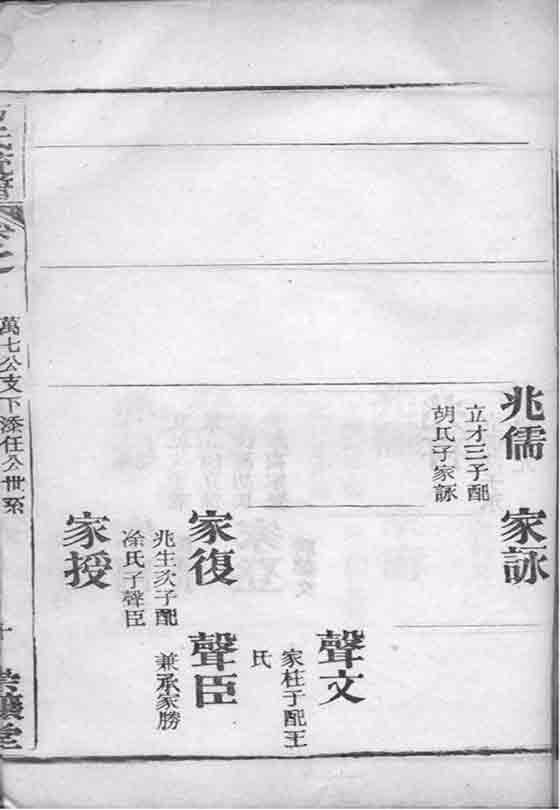 兆儒
立才三子配
胡氏子家詠
家詠
聲文
家柱子配王
氏
家復
兆生次子配
凃氏子聲臣
聲臣
兼承家勝
家授
萬七公支下添任公世系